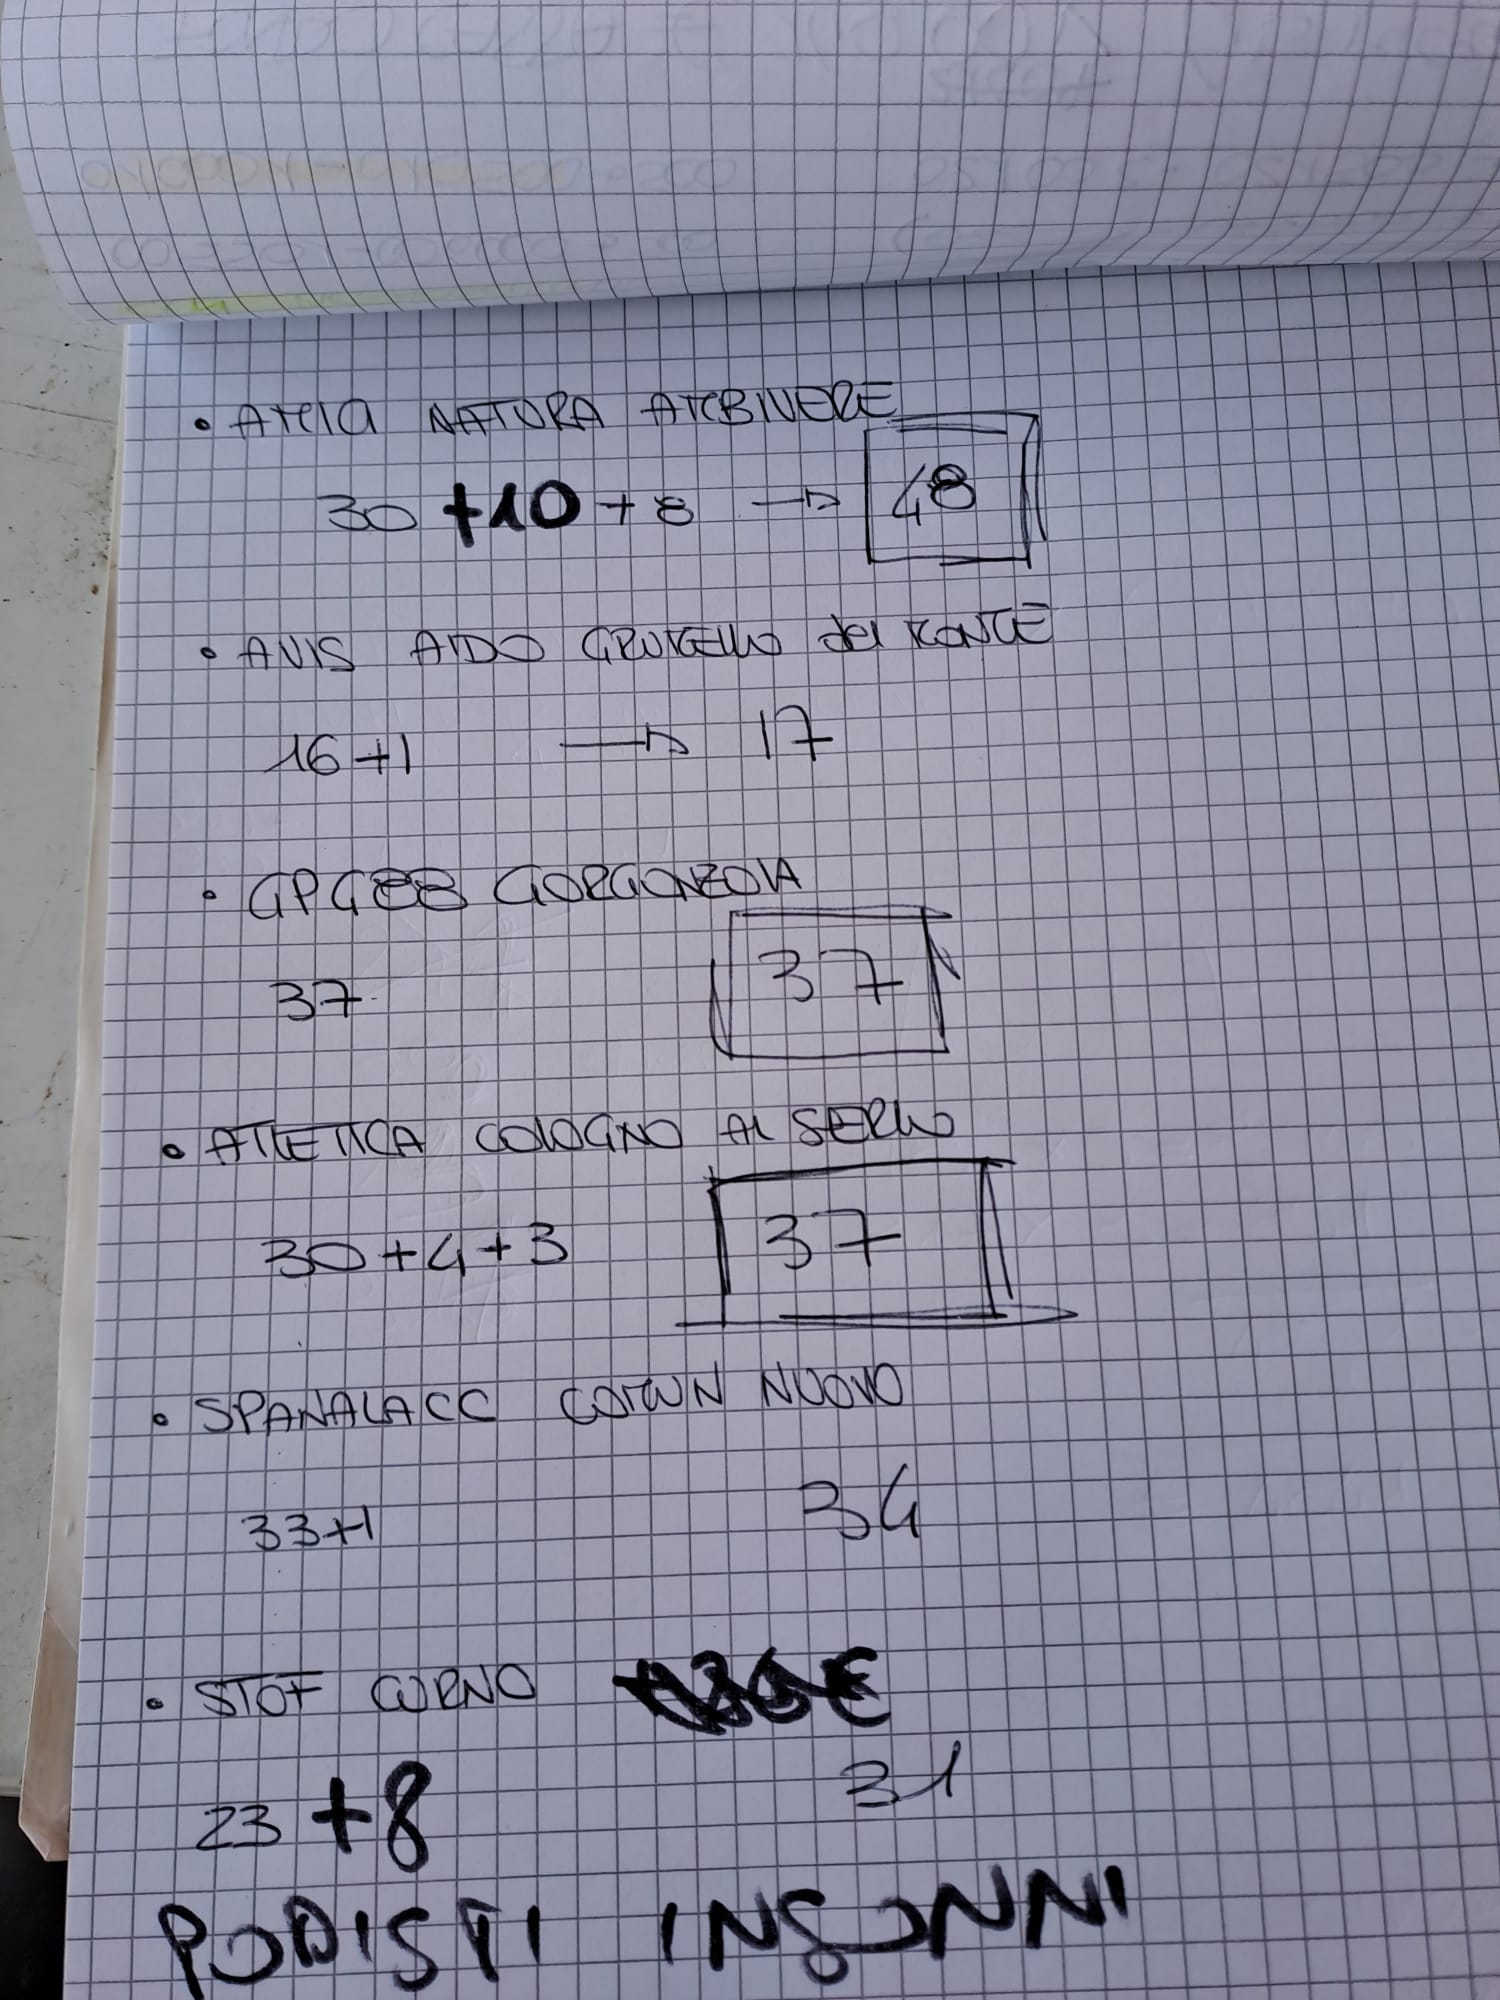 • AMICI NATURA AMBIVERE
30 +10 + 8 → 48
• AVIS AIDO GRUMELLO del MONTE
16+1 → 17
• GPG88 GORGONZOLA
37 37
• ATLETICA COLOGNO AL SERIO
30+4+3 37
• SPANALACC COMUN NUOVO
33+1 34
• CURNO
23 +8 31
PODISTI INSONNI